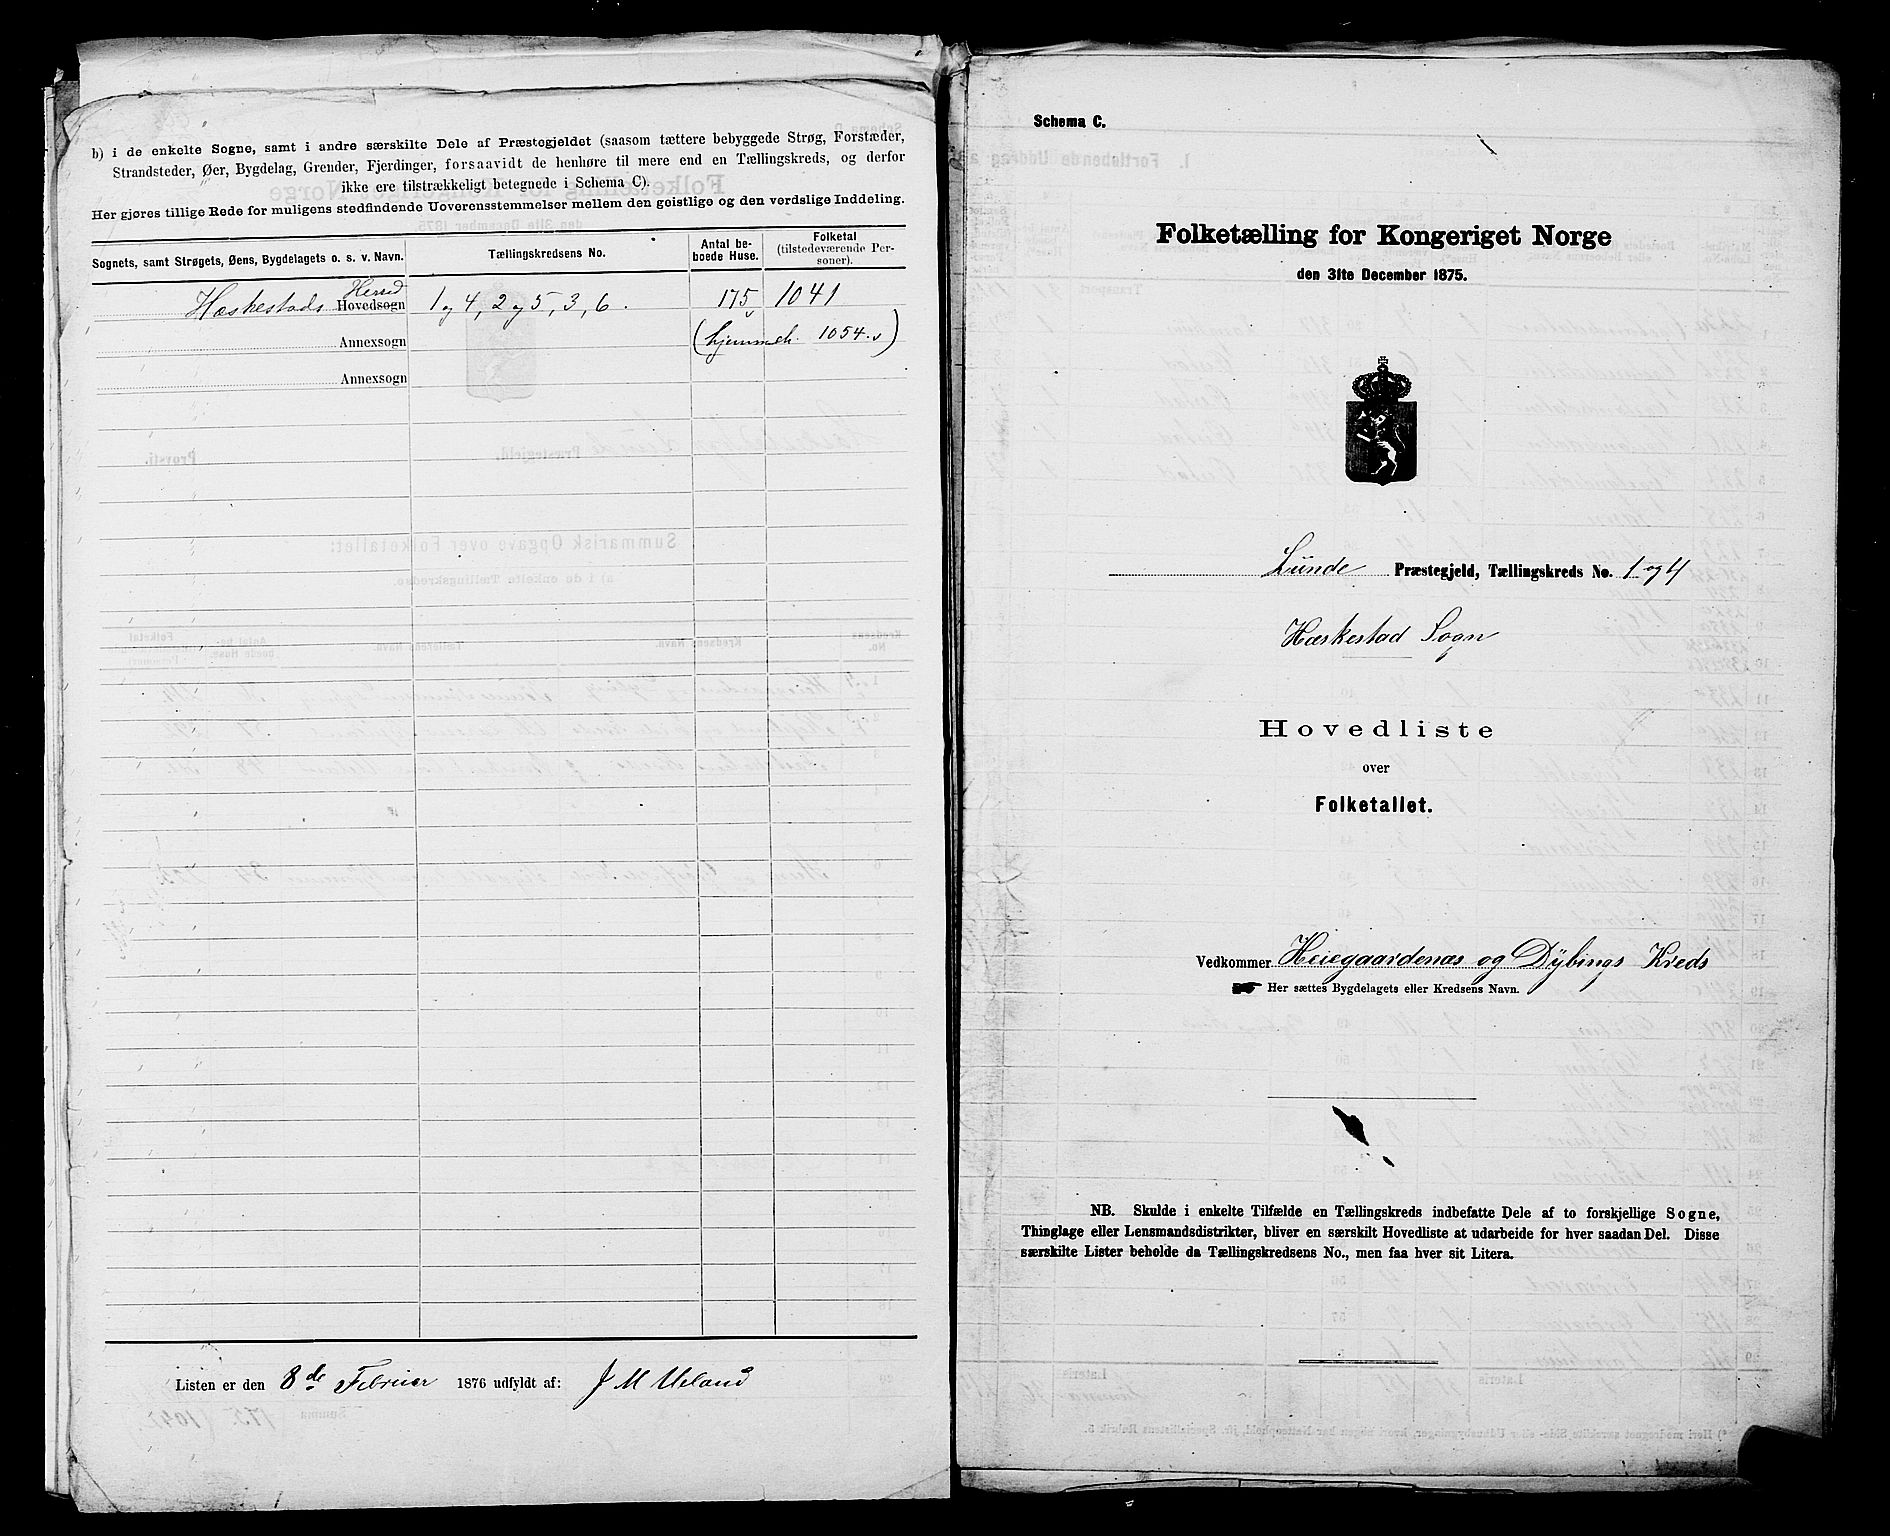 b) i de enkelte Sogne, samt i andre særskilte Dele af Præstegjeldet (saasom tættere bebyggede Strøg, Forstæder,
Strandsteder, Øer, Bygdelag, Grender, Fjerdinger, forsaavidt de henhøre til mere end en Tællingskreds, og derfor
ikke ere tilstrækkeligt betegnede i Schema C).
Her gjøres tillige Rede for muligens stedfindende Uoverensstemmelser mellem den geistlige og den verdslige Inddeling.
Sognets, samt Strøgets, Øens, Bygdelagets o. s. v. Navn.
Tællingskredsens No.
Antal be-
boede Huse.
Folketal
(tilstedeværende Per-
soner).
Herred
Hæskestads Hovedsogn 1 og 4, 2 og 5, 3, 6. 175 1041
Annexsogn (hjemmeh. 1054.)
Annexsogn
Listen er den 8de Februar 1876 udfyldt af: J M Ueland
Schema C.
Folketælling for Kongeriget Norge
den 31te December 1875.
Lunde Præstegjeld, Tællingskreds No. 1 og 4
Hæskestad Sogn
Hovedliste
over
Folketallet.
Vedkommer Heiegaardenes og Dybings Kreds
Her sættes Bygdelagets eller Kredsens Navn.
NB. Skulde i enkelte Tilfælde en Tællingskreds indbefatte Dele af to forskjellige Sogne,
Thinglage eller Lensmandsdistrikter, bliver en særskilt Hovedliste at udarbeide for hver saadan Del. Disse
særskilte Lister beholde da Tællingskredsens No., men faa hver sit Litera.